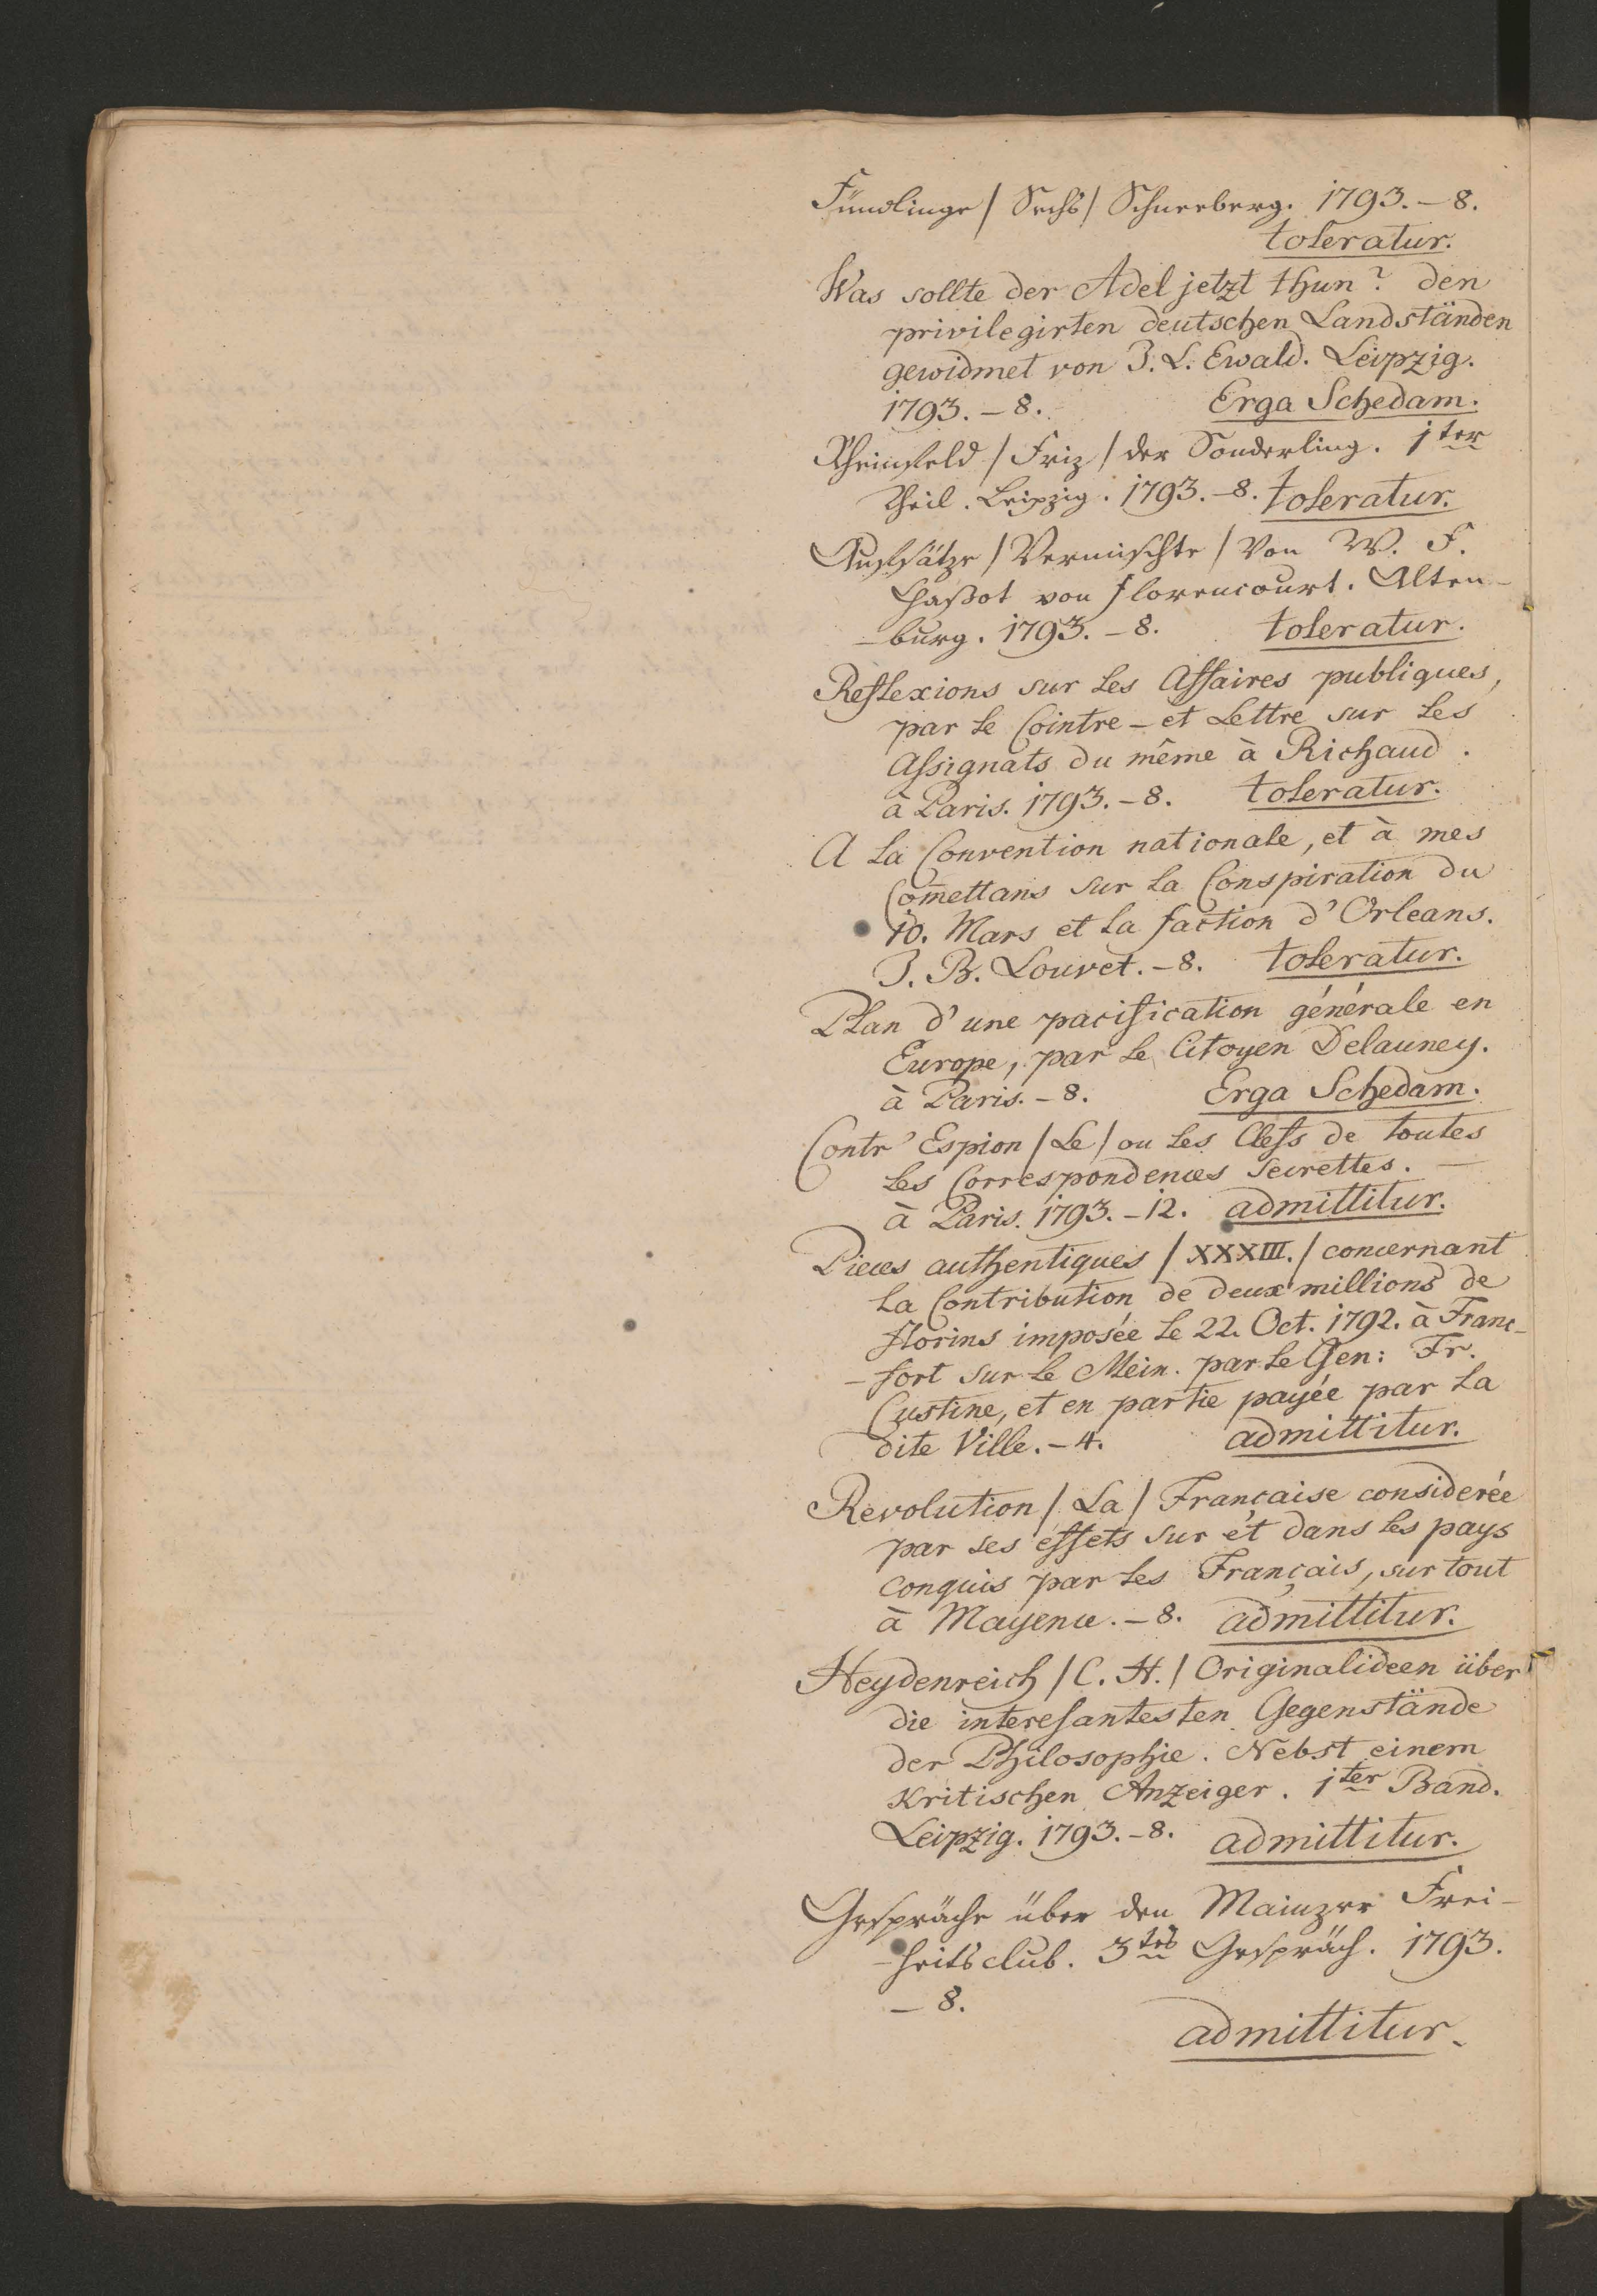 Fündlinge / Sechs / Schneeberg. 1793. – 8.
toleratur.
Was sollte der Adel jetzt thun? den
privilegirten deutschen Landständen
gewidmet von J. L. Ewald. Leipzig.
1793. – 8. Erga Schedam.
Rheinfeld / Friz / der Sonderling. 1ter
Theil. Leipzig. 1793. – 8. toleratur.
Aufsätze / Vermischte / Von W. F.
Chaßot von Florencourt. Alten-
-burg. 1793. – 8. toleratur.
Reflexions sur les Affaires publiques,
par le Cointre – et Lettre sur les
Assignats du même à Richaud.
à Paris. 1793. – 8. toleratur.
A la Convention nationale, et à mes
Com̄ettans sur la Conspiration du
10. Mars et la faction d'Orleans.
J. B. Louvet. – 8. toleratur.
Plan d'une pacification générale en
Europe, par le Citoyen Delauney.
à Paris. – 8. Erga Schedam.
Contr'Espion / Le / ou les Clefs de toutes
les Correspondences secrettes. –
à Paris. 1793. – 12. admittitur.
Pieces authentiques / XXXIII. / concernant
la Contribution de deux millions de
florins imposée le 22. Oct. 1792. à Franc-
-fort sur le Mein. par le Gen: Fr.
Custine, et en partie payée par la
dite Ville. – 4. admittitur.
Revolution / La / Française considerée
par ses éffets sur ét dans les pays
conquis par les Français, sur tout
à Mayence. – 8. admittitur.
Heydenreich / C. H. / Originalideen über
die interesantesten Gegenstände
der Philosophie. Nebst einem
Kritischen Anzeiger. 1ter Band.
Leipzig. 1793. – 8. admittitur.
Gespräche über den Mainzer Frei-
-heitsclub. 3tes Gespräch. 1793.
– 8.
admittitur.